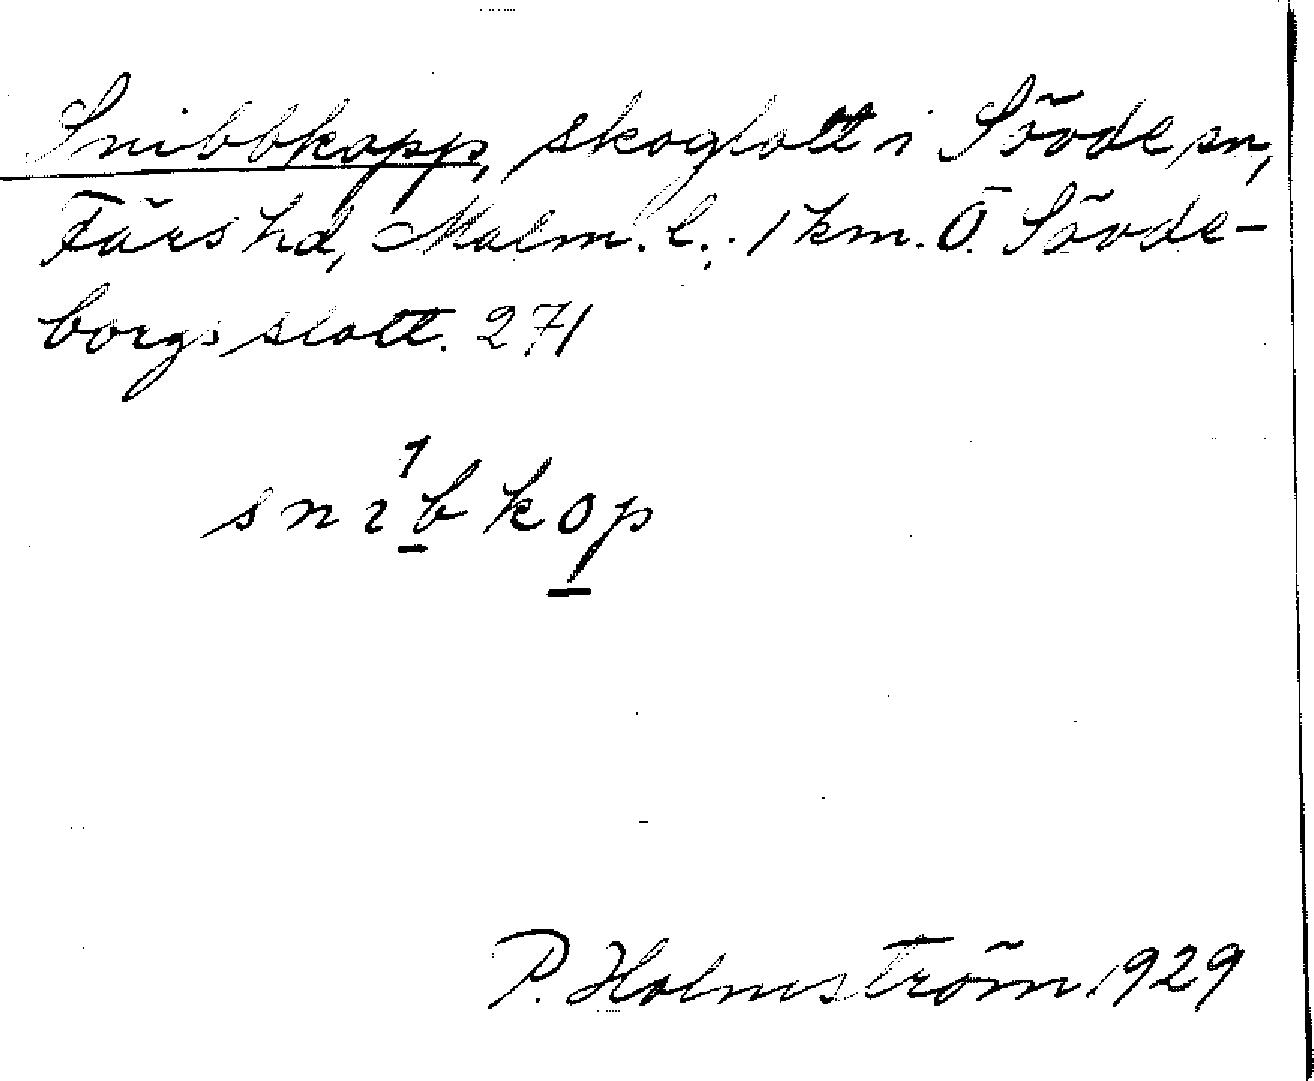 Snibbkopp, skoglott i Sövde sn,
Färs hd, Malm. l.; 1 km. Ö. Sövde-
borgs slott. 271
snıbkop
P. Holmström 1929